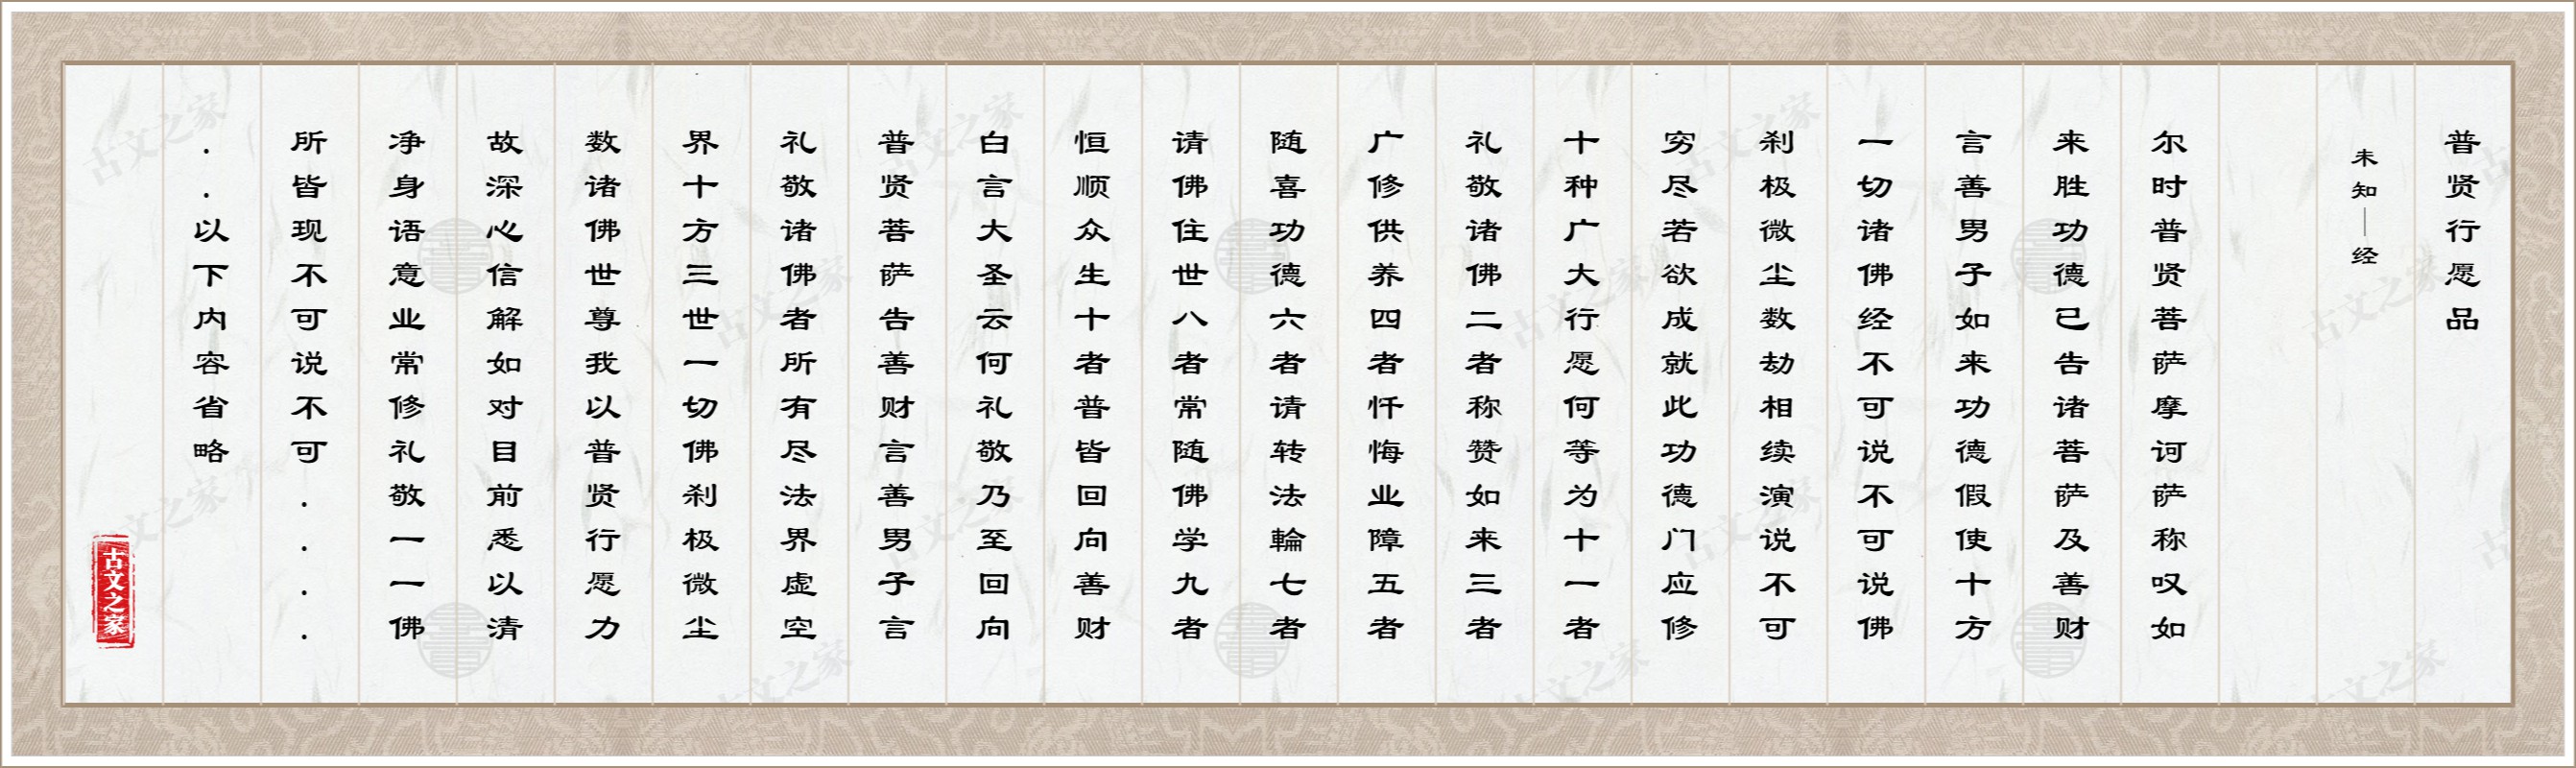 普贤行愿品
未知｜经
尔时普贤菩萨摩诃萨称叹如
来胜功德已告诸菩萨及善财
言善男子如来功德假使十方
一切诸佛经不可说不可说佛
刹极微尘数劫相续演说不可
穷尽若欲成就此功德门应修
十种广大行愿何等为十一者
礼敬诸佛二者称赞如来三者
广修供养四者忏悔业障五者
随喜功德六者请转法輪七者
请佛住世八者常随佛学九者
恒顺众生十者普皆回向善财
白言大圣云何礼敬乃至回向
普贤菩萨告善财言善男子言
礼敬诸佛者所有尽法界虚空
界十方三世一切佛刹极微尘
数诸佛世尊我以普贤行愿力
故深心信解如对目前悉以清
净身语意业常修礼敬一一佛
所皆现不可说不可....
..以下内容省略
古文之家